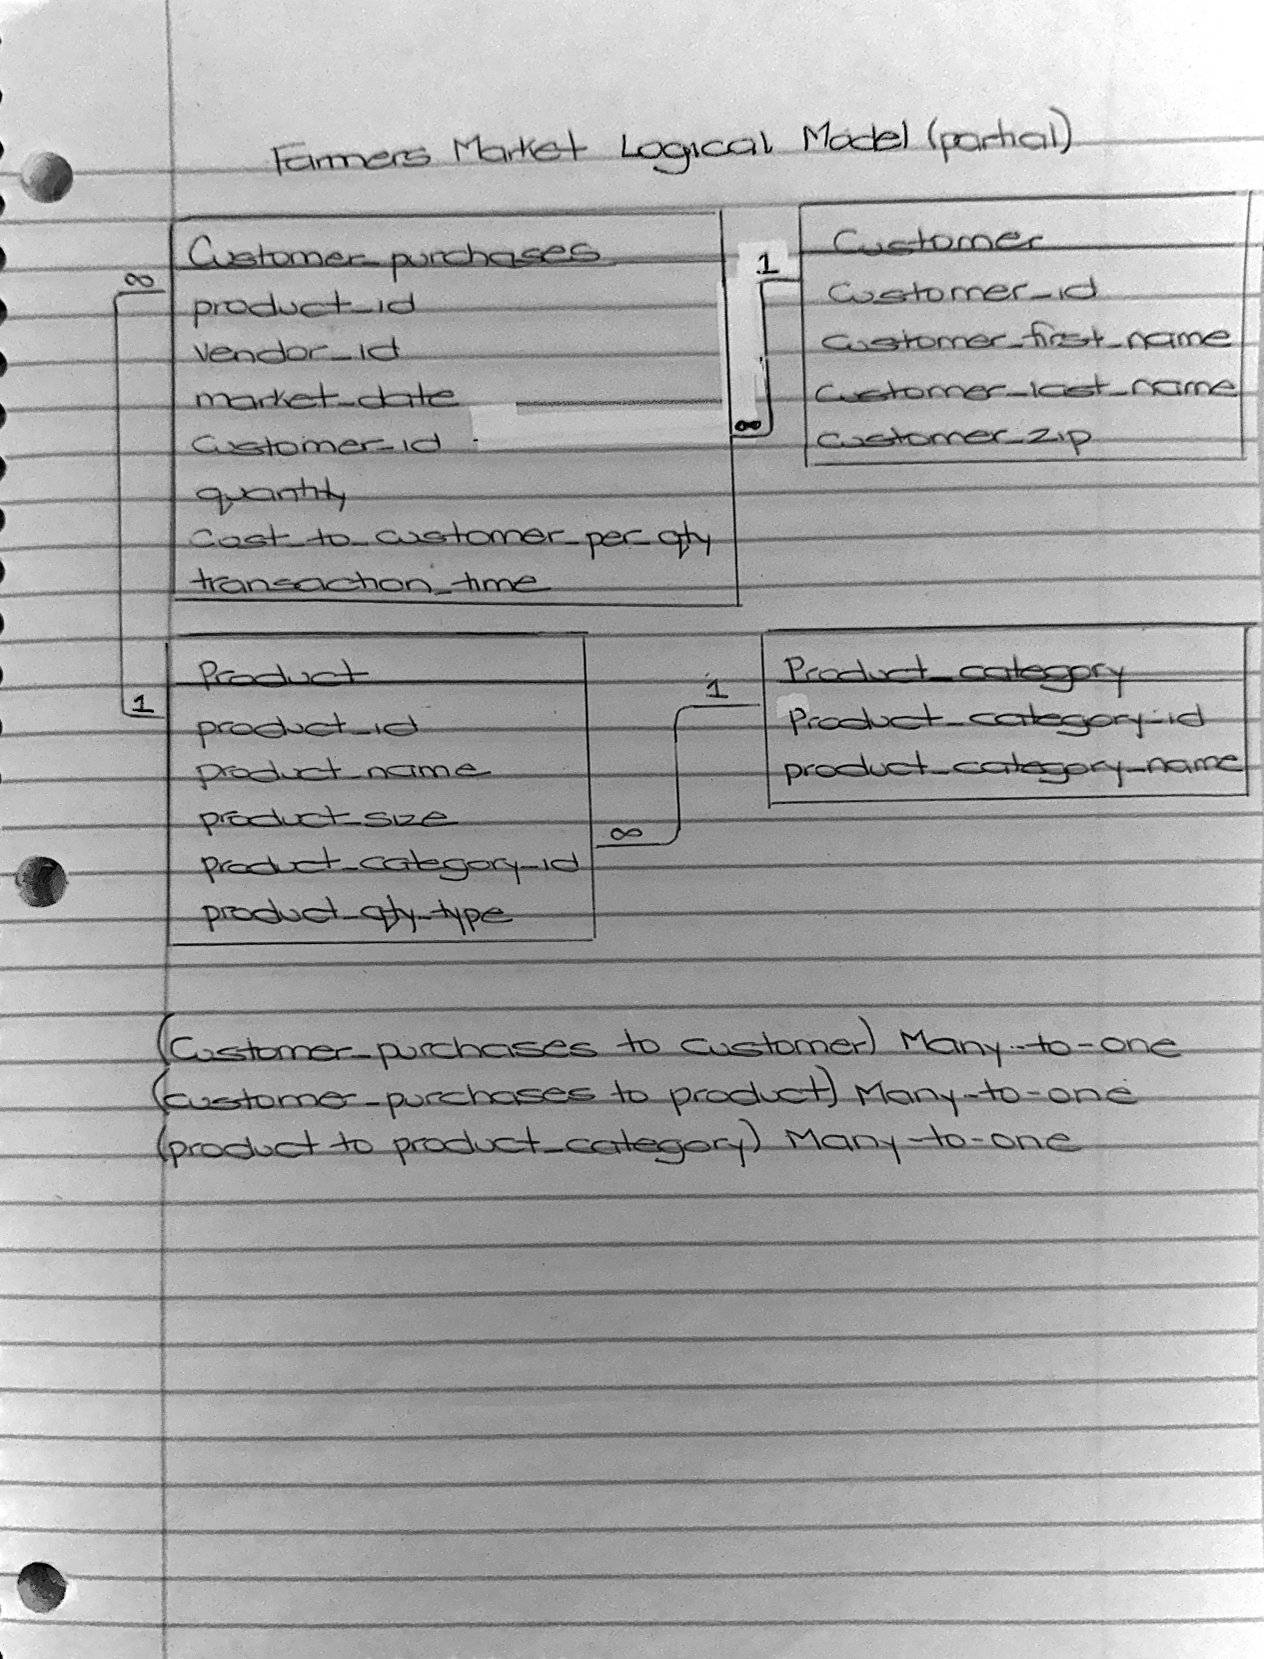 Farmers Market Logical Model (partial)
Customer_purchases
product_id
vendor_id
market_date
customer_id
quantity
cost_to_customer_per_qty
transaction_time
∞
1
1
∞
Customer
customer_id
customer_first_name
customer_last_name
customer_zip
Product
product_id
product_name
product_size
product_category_id
product_qty_type
1
∞
Product_category
Product_category_id
product_category_name
(Customer_purchases to customer) Many-to-one
(customer_purchases to product) Many-to-one
(product to product_category) Many-to-one